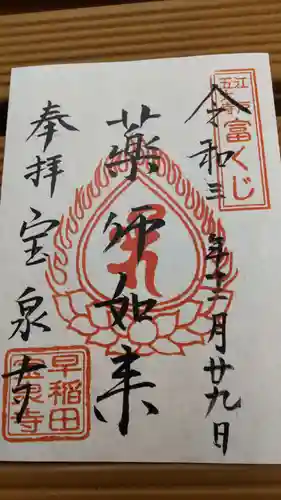 令和三年十一月廿九日
富くじ
薬師如来
奉拝
宝泉寺
早稲田
宝泉寺